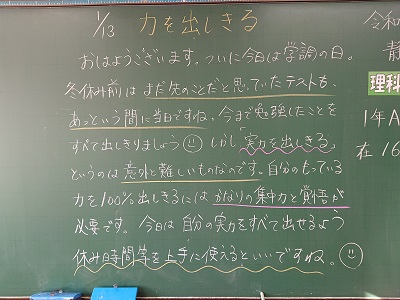 1/13 力を出しきる
おはようございます。ついに今日は学調の日。
冬休み前はまだ先のことだと思っていたテストも、
あっという間に当日ですね。今まで勉強したことを
すべて出しきりましょう しかし「実力を出しきる」
というのは意外と難しいものなのです。自分のもっている
力を100%出しきるにはかなりの集中力と覚悟が
必要です。今日は自分の実力をすべて出せるよう
休み時間等を上手に使えるといいですね。
令和
理科
1年A
在 16